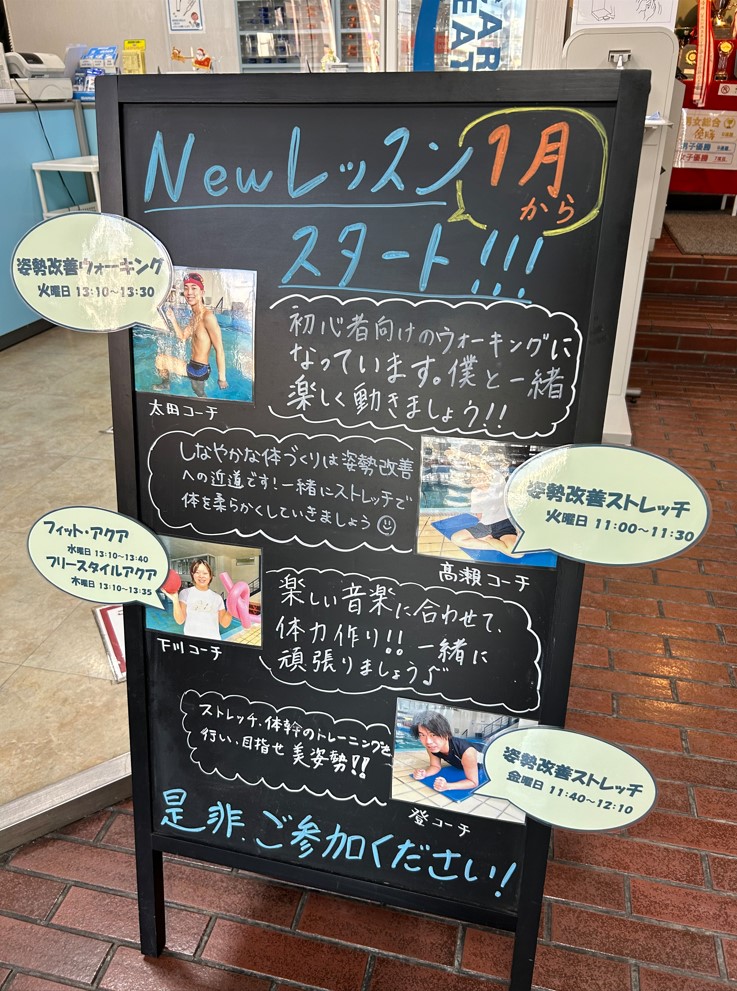 Newレッスン 1月から
スタート!!!
姿勢改善ウォーキング
火曜日 13:10~13:30
太田コーチ
初心者向けのウォーキングに
なっています。僕と一緒
楽しく動きましょう!!
しなやかな体づくりは姿勢改善
への近道です!一緒にストレッチで
体を柔らかくしていきましょう☺
姿勢改善ストレッチ
火曜日 11:00~11:30
高瀬コーチ
フィット・アクア
水曜日 13:10~13:40
フリースタイルアクア
木曜日 13:10~13:35
下川コーチ
楽しい音楽に合わせて、
体力作り!!一緒に
頑張りましょう♪
ストレッチ、体幹のトレーニングを
行い、目指せ美姿勢!!
姿勢改善ストレッチ
金曜日 11:40~12:10
登コーチ
是非、ご参加ください!